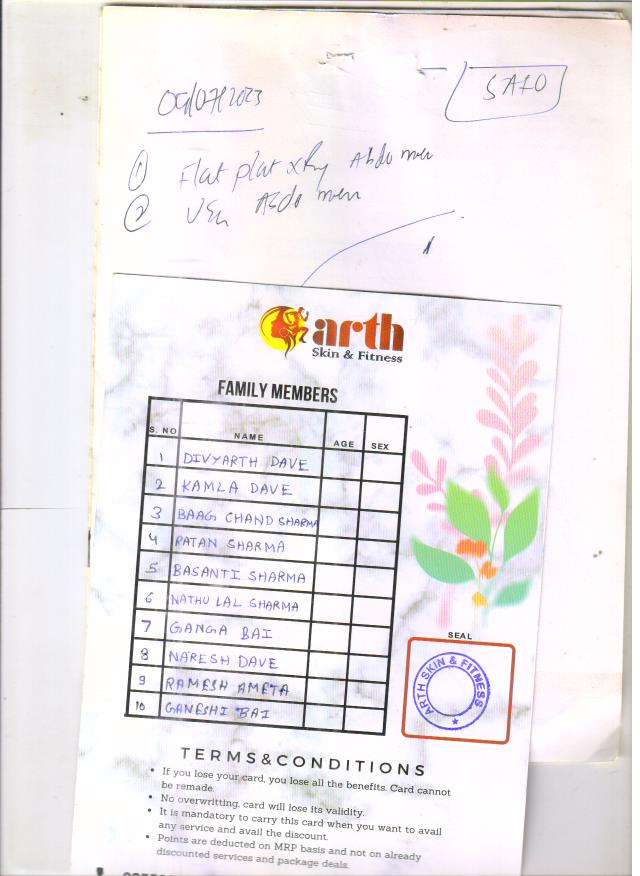 05/07/2023
SATO
① Flat plat xRay Abdomen
② USG Abdomen
arth
Skin & Fitness
FAMILY MEMBERS
S. NO NAME AGE SEX
1 DIVYARTH DAVE
2 KAMLA DAVE
3 BAAG CHAND SHARMA
4 RATAN SHARMA
5 BASANTI SHARMA
6 NATHU LAL SHARMA
7 GANGA BAI
8 NARESH DAVE
9 RAMESH AMETA
10 GANESHI BAI
SEAL
ARTH SKIN & FITNESS
TERMS&CONDITIONS
• If you lose your card, you lose all the benefits. Card cannot
be remade.
• No overwritting, card will lose its validity.
• It is mandatory to carry this card when you want to avail
any service and avail the discount.
• Points are deducted on MRP basis and not on already
discounted services and package deals.